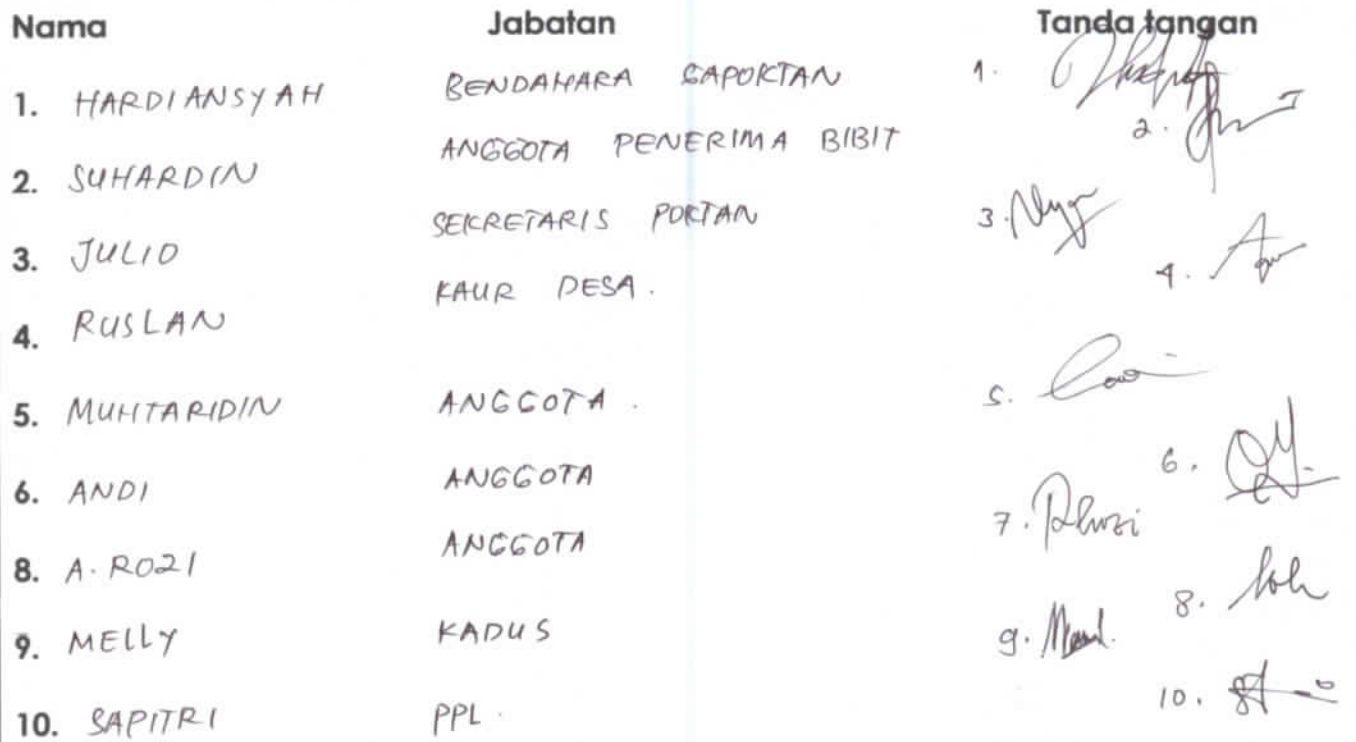 Nama Jabatan Tanda tangan
1. HARDIANSYAH BENDAHARA GAPOKTAN 1.
2. SUHARDIN ANGGOTA PENERIMA BIBIT 2.
3. JULIO SEKRETARIS POKTAN 3.
4. RUSLAN KAUR DESA. 4.
5. MUHTARIDIN ANGGOTA. 5.
6. ANDI ANGGOTA 6.
8. A. ROZI ANGGOTA 7.
9. MELLY KADUS 8.
10. SAPITRI PPL. 9.
10.